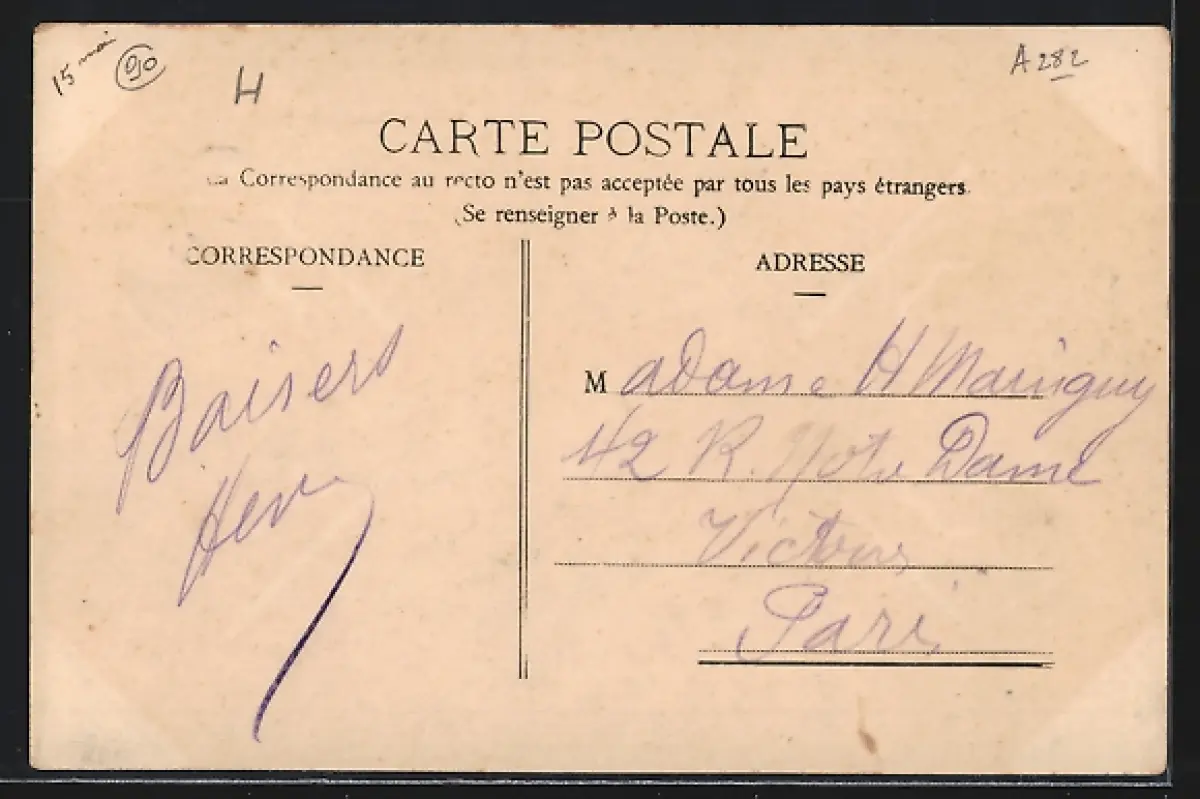 15 mai 90
H
A 282
CARTE POSTALE
La Correspondance au recto n'est pas acceptée par tous les pays étrangers.
(Se renseigner à la Poste.)
CORRESPONDANCE
Baisers
ADRESSE
Madame H Mainguy
42 R. Notre Dame
Victoires
Paris